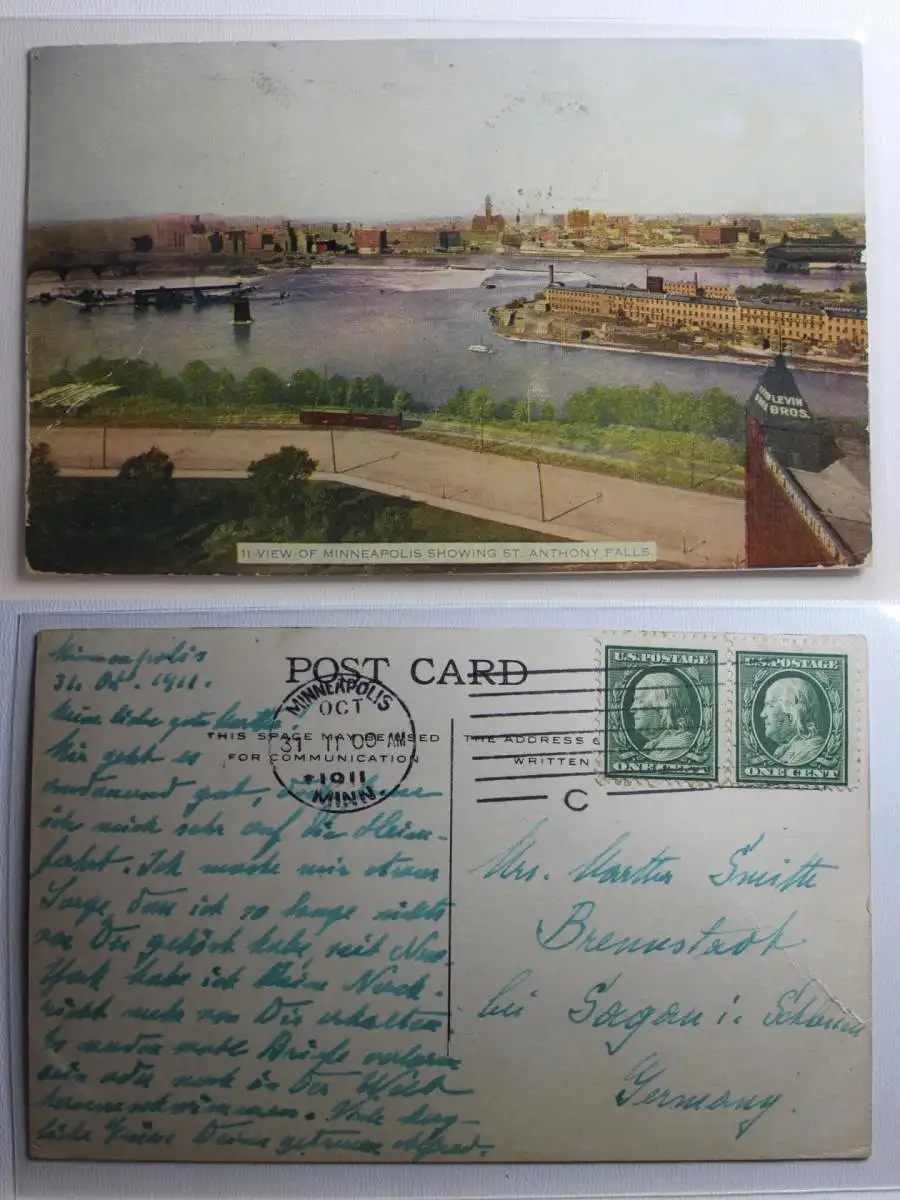 LEVIN
BROS.
11 VIEW OF MINNEAPOLIS SHOWING ST. ANTHONY FALLS.
POST CARD
THIS SPACE MAY BE USED
FOR COMMUNICATION
THE ADDRESS
WRITTEN
MINNEAPOLIS
OCT
31 11 00 AM
1911
MINN.
C
U.S. POSTAGE
ONE CENT
U.S. POSTAGE
ONE CENT
Minneapolis
31. Ok. 1911.
Meine liebe gute Martha,
Mir geht es
gut,
ich mich sehr auf die Heim-
fahrt. Ich mache mir etwas
Sorge, dass ich so lange nichts
von Dir gehört habe, seit New
York habe ich keine Nach-
richt mehr von Dir erhalten
Es wohl Briefe verloren
sein oder noch in der Welt
herumschwimmen. Viele herz-
liche Grüsse Deine getreuer Alfred.
Mrs. Martha Smitte
Brennstadt
bei Sagan i. Schlesien
Germany.